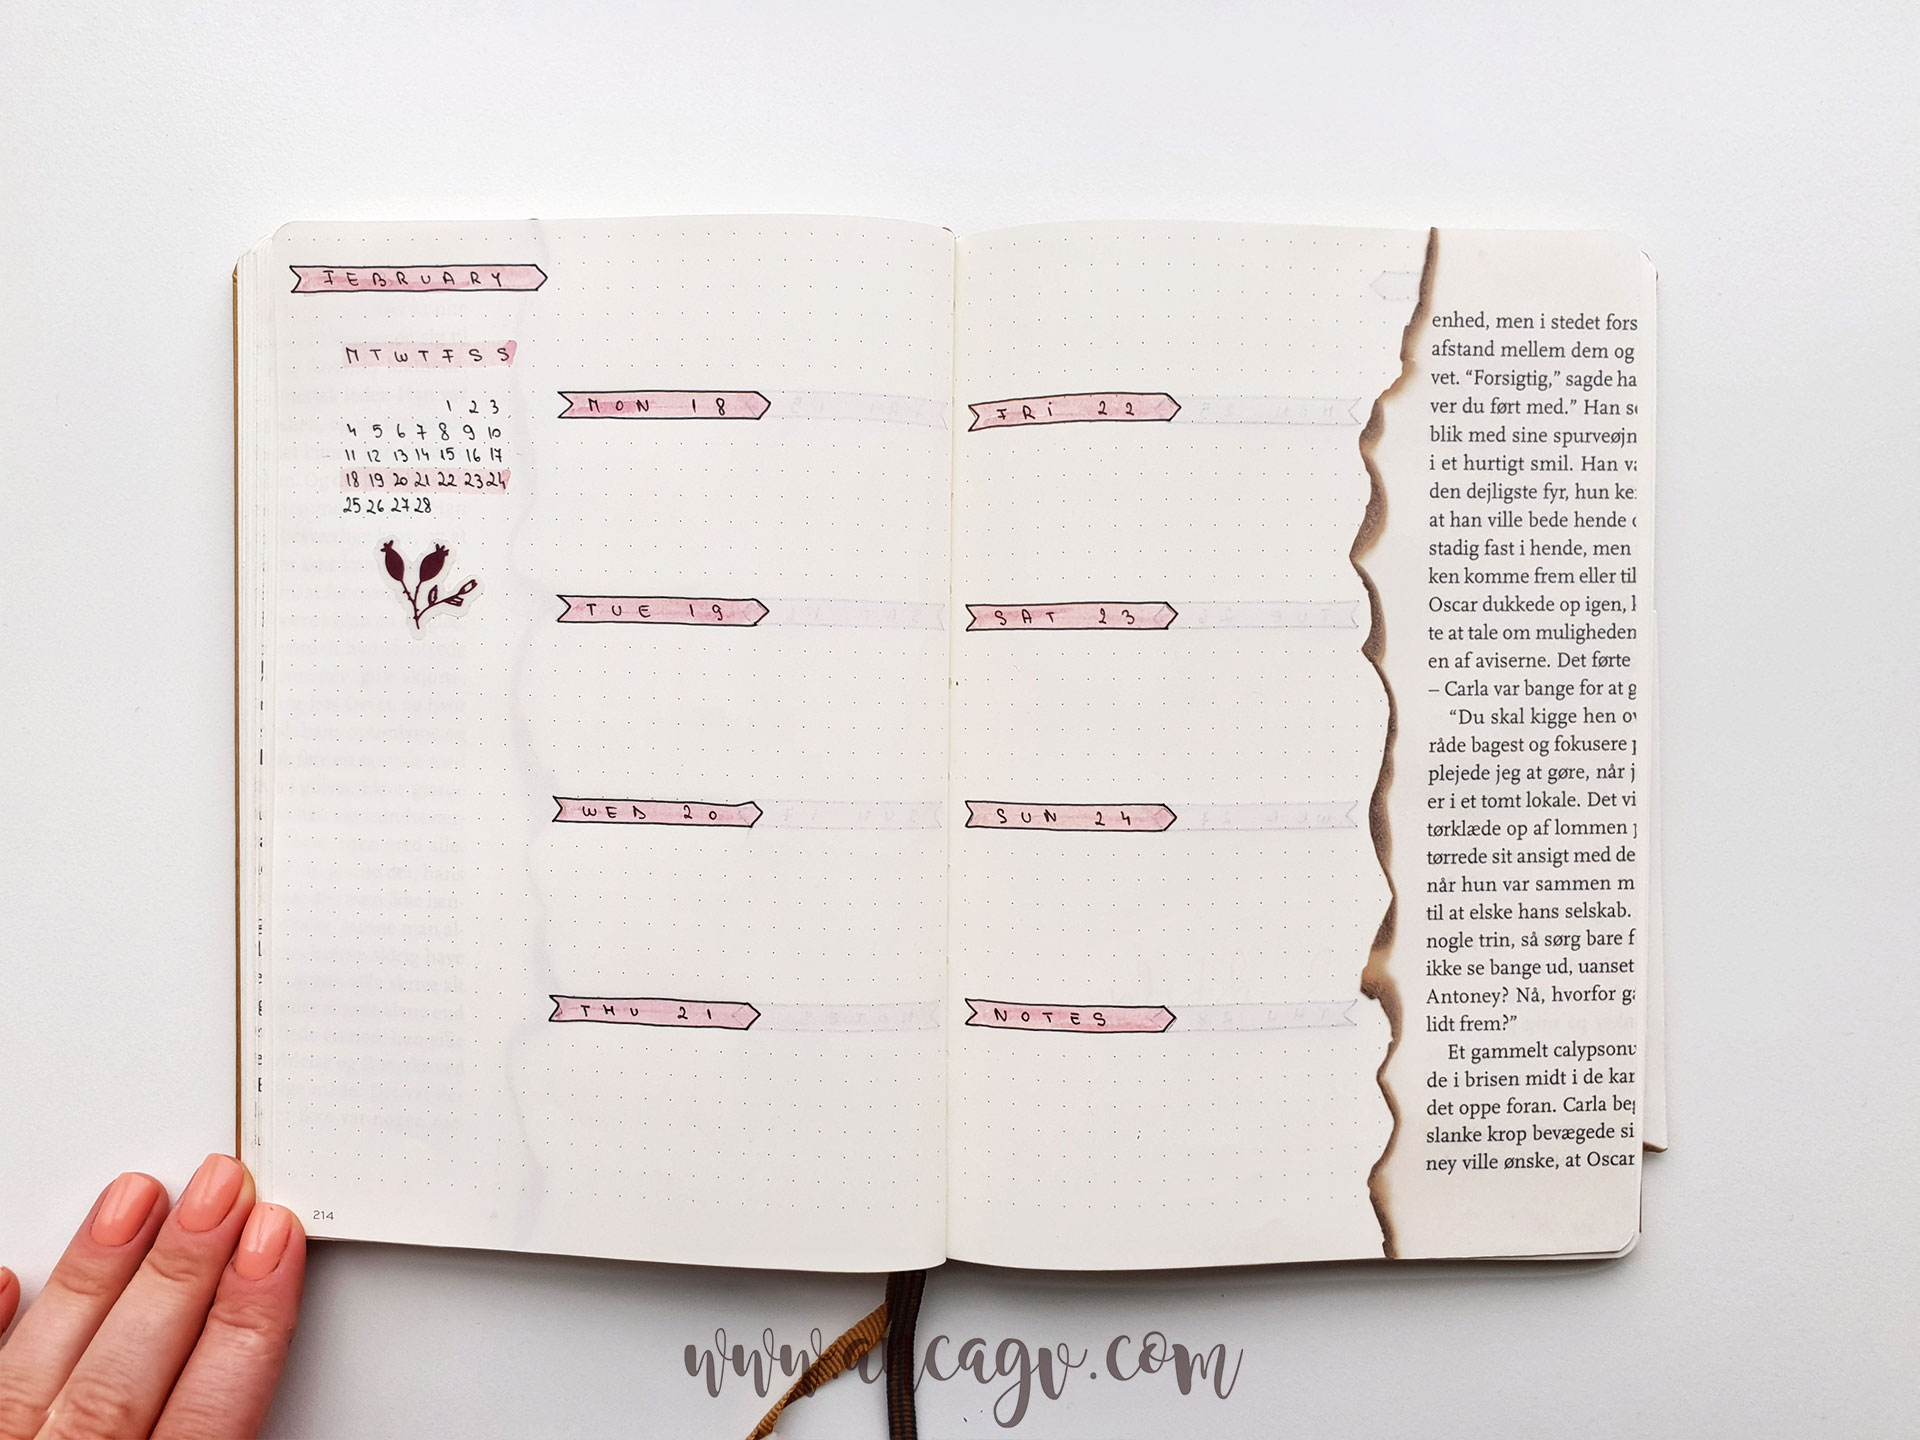 FEBRUARY
M T W T F S S
1 2 3
4 5 6 7 8 9 10
11 12 13 14 15 16 17
18 19 20 21 22 23 24
25 26 27 28
214
MON 18
TUE 19
WED 20
THU 21
FRI 22
SAT 23
SUN 24
NOTES
enhed, men i stedet fors
afstand mellem dem og
vet. “Forsigtig,” sagde ha
ver du ført med.” Han
blik med sine spurveøjn
i et hurtigt smil. Han
den dejligste fyr, hun
at han ville bede hende
stadig fast i hende, men
ken komme frem eller til
Oscar dukkede op igen,
te at tale om muligheden
en af aviserne. Det førte
– Carla var bange for at
“Du skal kigge hen
råde bagest og fokusere
plejede jeg at gøre, når
er i et tomt lokale. Det vi
tørklæde op af lommen
tørrede sit ansigt med de
når hun var sammen m
til at elske hans selskab.
nogle trin, så sørg bare f
ikke se bange ud, uanset
Antoney? Nå, hvorfor
lidt frem?”
Et gammelt calypsonu
de i brisen midt i de kar
det oppe foran. Carla
slanke krop bevægede si
ney ville ønske, at Oscar